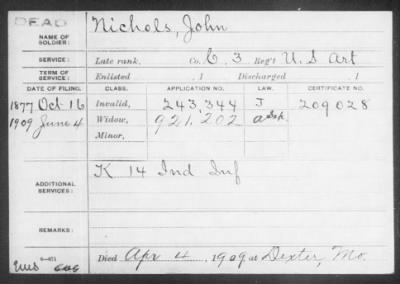 DEAD
NAME OF SOLDIER: Nichols, John
SERVICE: Late rank, Co. C, 3 Reg't U.S Art
TERM OF SERVICE: Enlisted , 1 Discharged , 1
DATE OF FILING. CLASS. APPLICATION NO. LAW. CERTIFICATE NO.
1877 Oct 16 Invalid, 243,344 J 209028
1909 June 4 Widow, 921,202
Minor,
ADDITIONAL SERVICES: K 14 Ind Inf
REMARKS:
Died Apr 4, 1909 at Dexter, Mo.